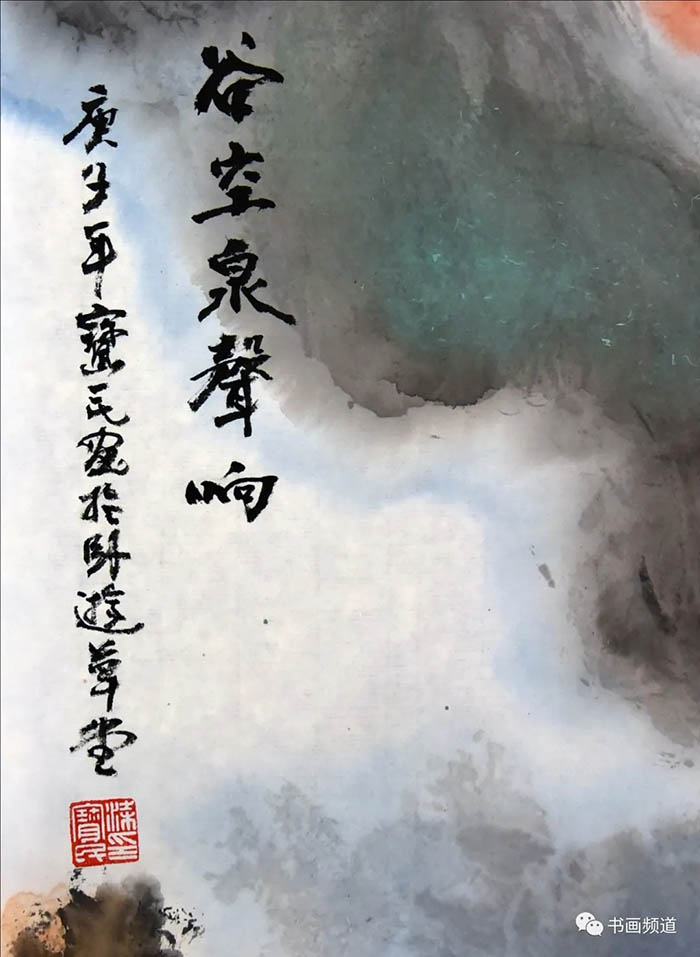 谷空泉聲响
庚子年寶民寫於卧遊草堂
書画频道